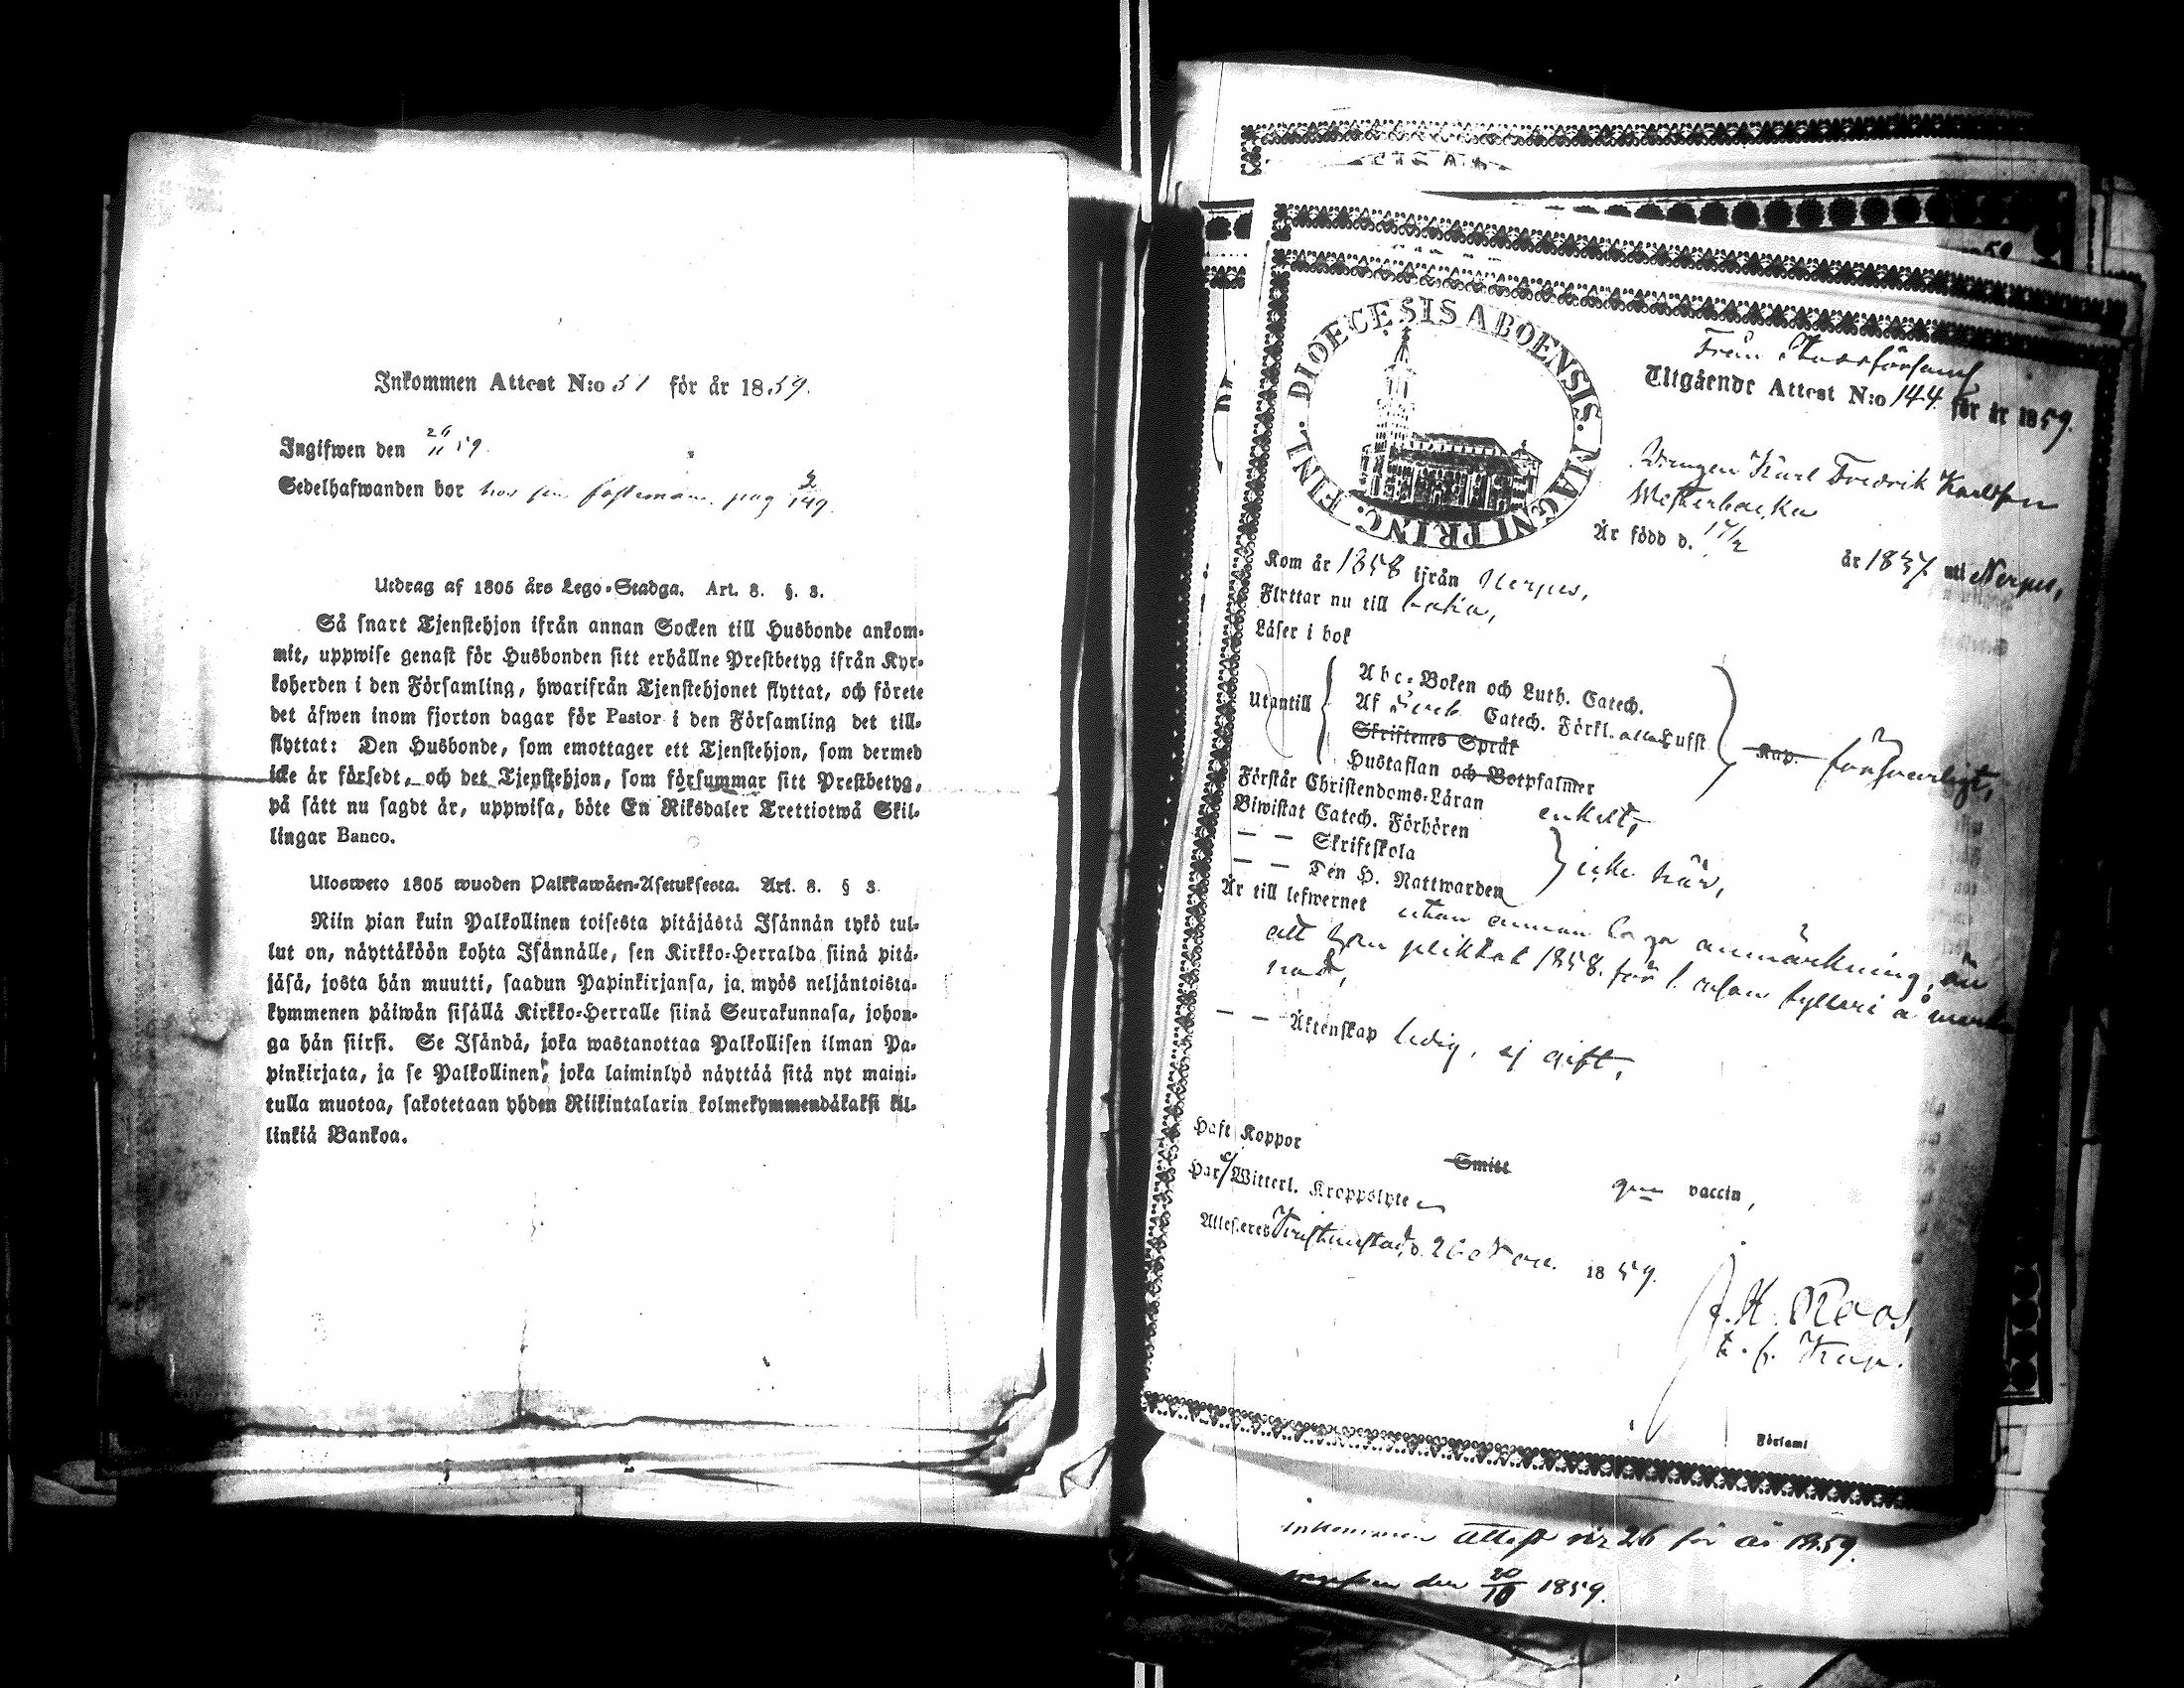 Inkommen Attest N:o 51 för år 1859.
Ingifwen den 26/11 59.
Sedelhafwanden bor hos sin pag 149.
Utdrag af 1805 års Lego-Stadga. Art. 8. §. 3.
Så snart Tjenstehjon ifrån annan Socken till Husbonde ankom-
mit, uppwise genast för Husbonden sitt erhållne Prestbetyg ifrån Kyr-
koherden i den Församling, hwarifrån Tjenstehjonet flyttat, och förete
det äfwen inom fjorton dagar för Pastor i den Församling det till-
flyttat: Den Husbonde, som emottager ett Tjenstehjon, som dermed
icke är försedt, och det Tjenstehjon, som försummar sitt Prestbetyg,
på sätt nu sagdt är, uppwisa, böte En Riksdaler Trettiotwå Skil-
lingar Banco.
Ulosweto 1805 wuoden Palkkawäen-Asetuksesta. Art. 8. § 3.
Niin pian kuin Palkollinen toisesta pitäjästä Isännän tykö tul-
lut on, näyttäköön kohta Isännälle, sen Kirkko-Herralda siinä pitä-
jäsä, josta hän muutti, saadun Papinkirjansa, ja myös neljäntoista-
kymmenen päiwän sisällä Kirkko-Herralle siinä Seurakunnasa, johon-
ga hän siirsi. Se Isändä, joka wastanottaa Palkollisen ilman Pa-
pinkirjata, ja se Palkollinen, joka laiminlyö näyttää sitä nyt maini-
tulla muotoa, sakotetaan yhden Riikintalarin kolmekymmendäkaksi kil-
linkiä Bankoa.
DIOECESIS ABOENSIS. MAGNI PRINC. FINL.
Från
Utgående Attest N:o 144 för år 1859.
Drengen Karl Fredrik Karlsson
Westerbacka
Är född d. 17/2 år 1837 uti Nerpes,
Kom år 1858 ifrån Nerpes,
Flyttar nu till baka,
Läser i bok
Utantill
Abc-Boken och Luth. Catech.
Af Sveb. Catech. Förkl. Lufft
Skriftenes Språk
Hustaflan och Botpsalmer
Kap. försvarligt,
Förstår Christendoms-Läran enkelt,
Biwistat Catech. Förhören
— — Skriftskola
— — Den H. Nattwarden
icke här,
Är till lefwernet utan annan laga anmärkning, än
att han pliktat 1858 för 1. resan fylleri å mark-
nad,
— — Äktenskap ledig, ej gift,
Haft Koppor Smitt gm vaccin,
Har ej Witterl. Kroppslyte
Attesteres Kristinestad d. 26 Nov. 1859.
J. K. Roos,
t. f. Kap.
Församl
inkommen Attest nr 26 för år 1859.
ingifven den 20/10 1859.